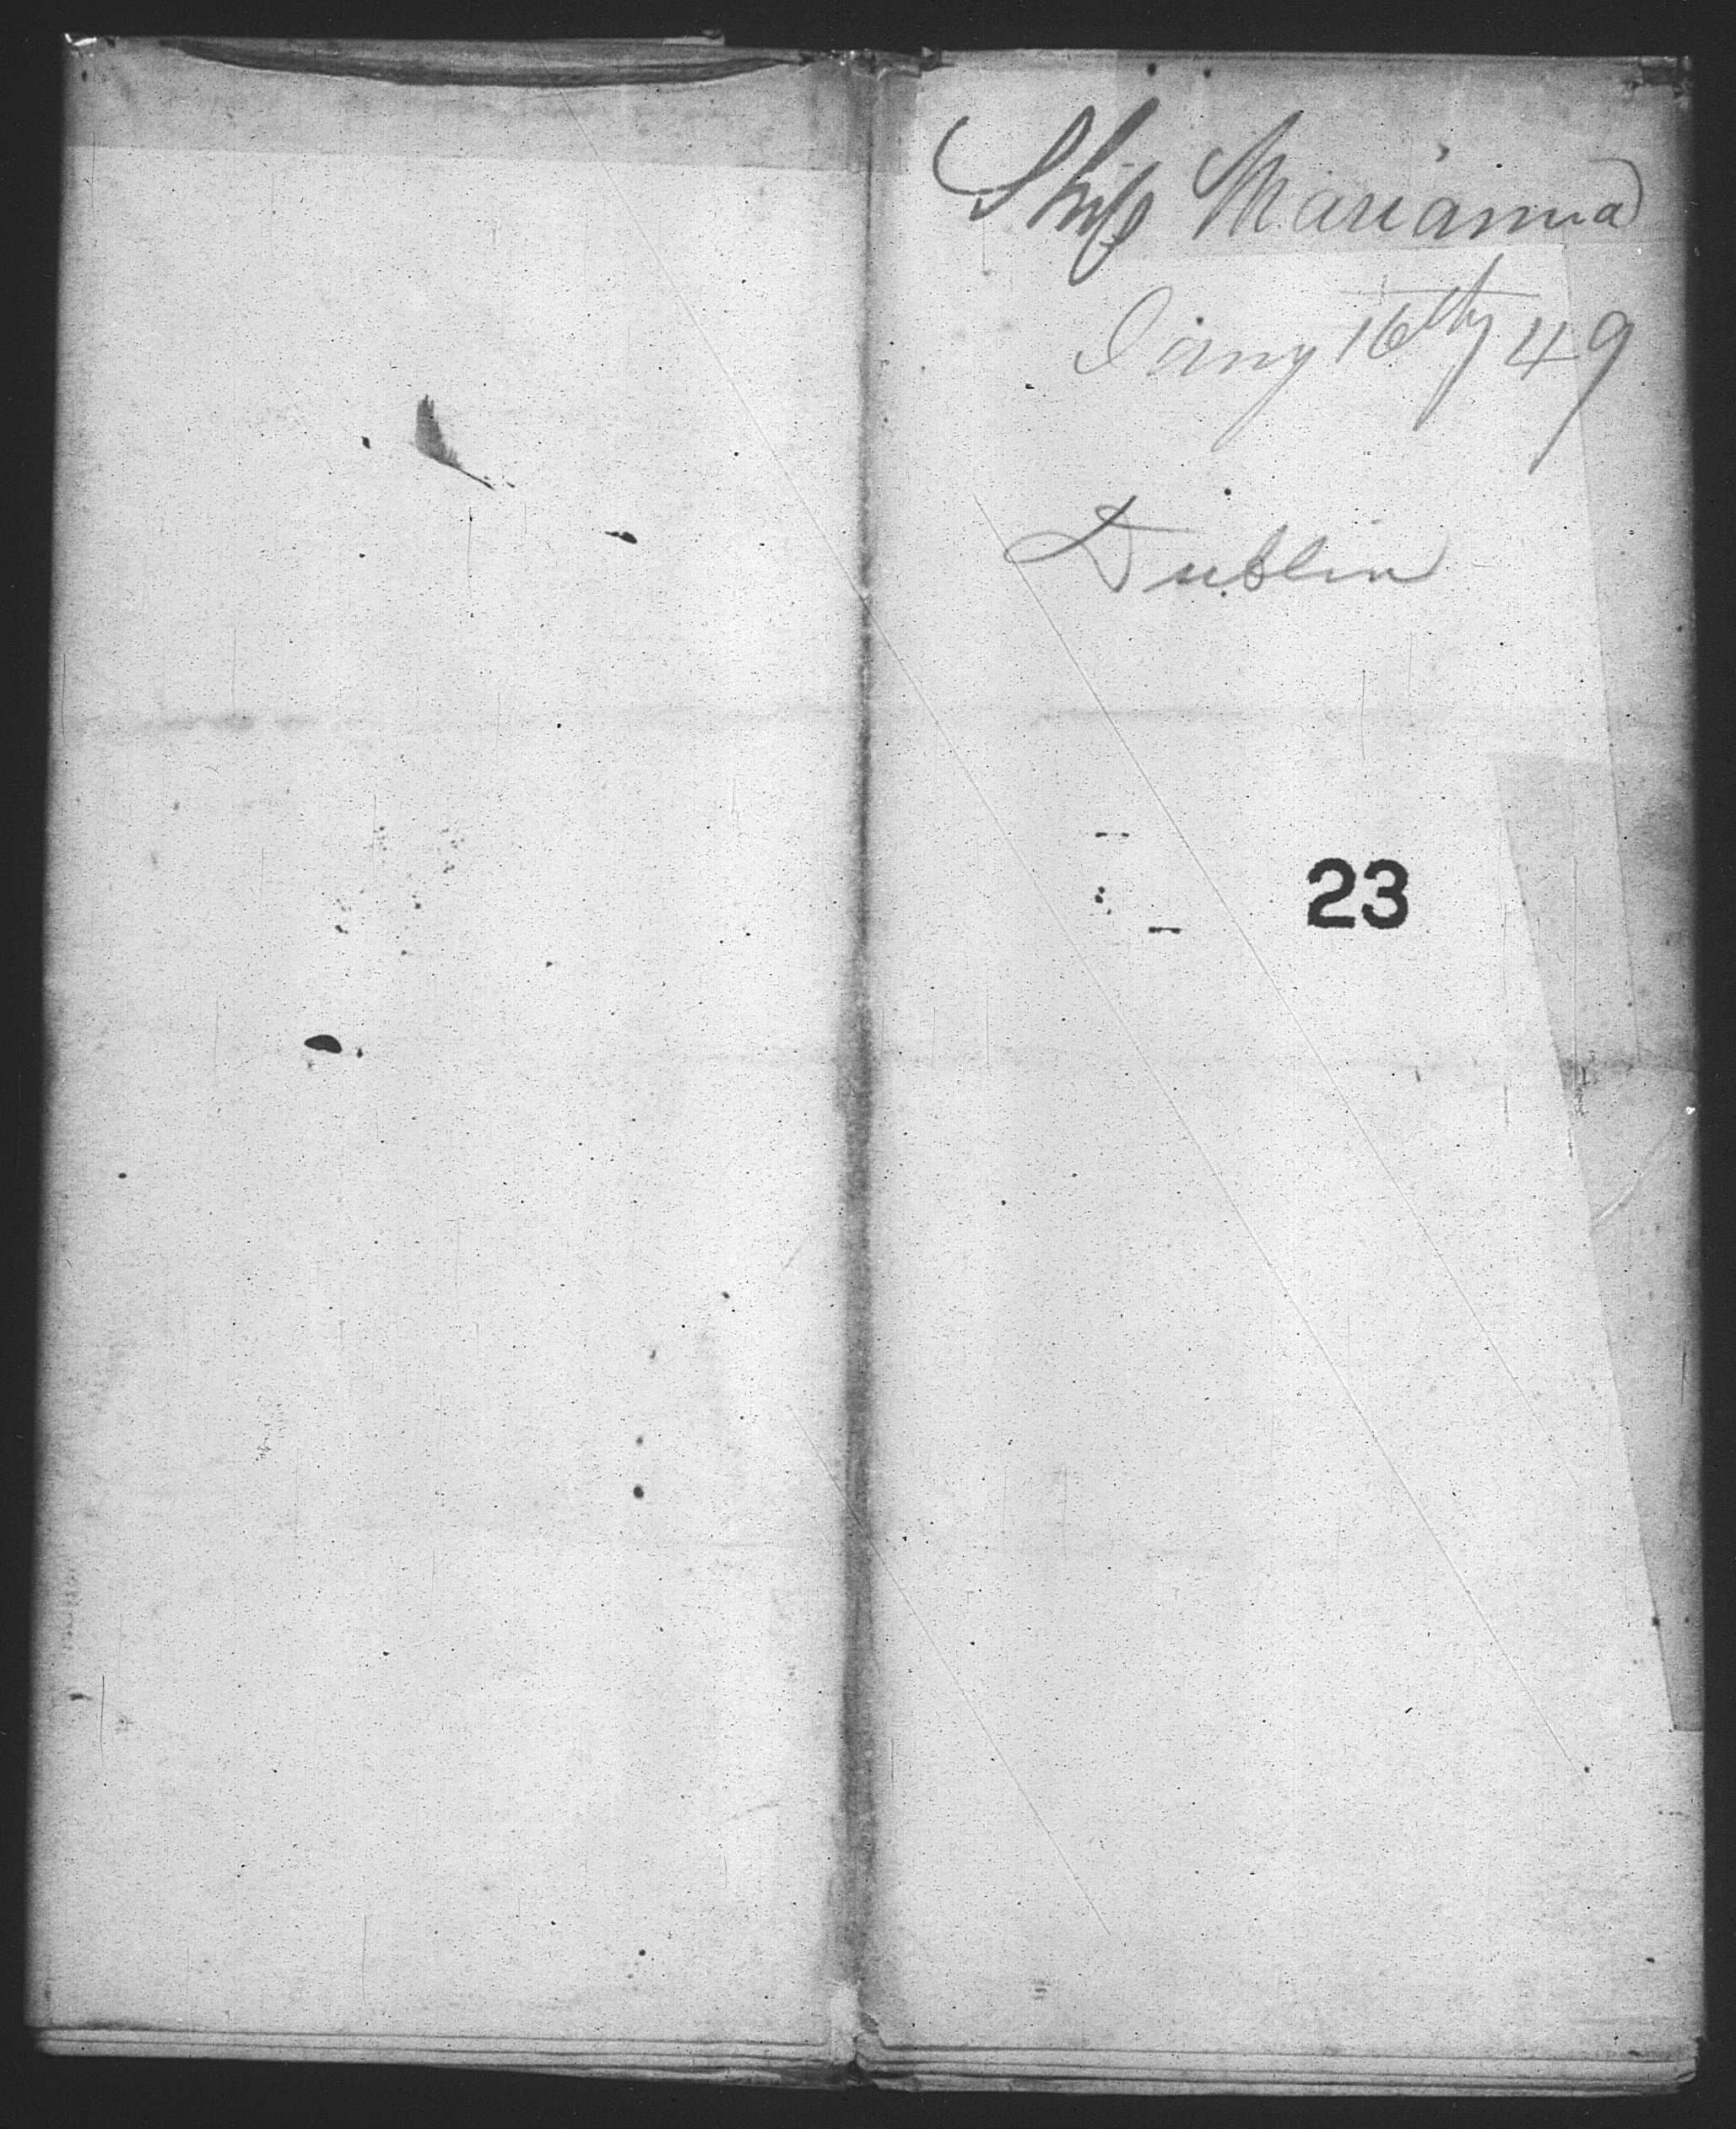 Ship Marianna
Jany 16th 49
Dublin
23